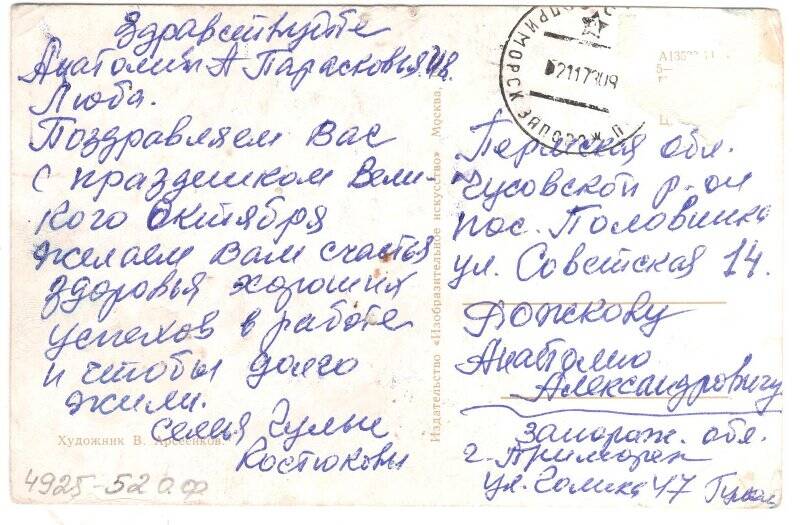 Здравствуйте
Анатолий А Парасковья И.
Люба.
Поздравляем Вас
с праздником Вели-
кого Октября
желаем Вам счастья
здоровья хороших
успехов в работе
и чтобы долго
жили.
семья Гулые
Костюковы
Художник В. Арсеенков
4925-52 О.Ф
Издательство «Изобразительное искусство» Москва,
ПРИМОРСК ЗАПОРОЖ.
021173 09
Пермская обл.
Чусовской р-он
пос. Половинка
ул. Советская 14.
Рожкову
Анатолию
Александровичу
Запорож. обл.
г. Приморск
ул. 47